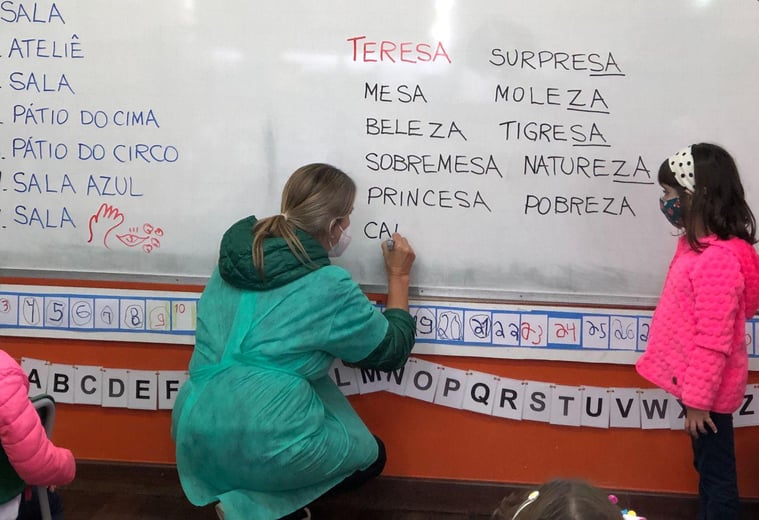 SALA
. ATELIÊ
. SALA
. PÁTIO DO CIMA
. PÁTIO DO CIRCO
. SALA AZUL
. SALA
TERESA
MESA
BELEZA
SOBREMESA
PRINCESA
CA
SURPRESA
MOLEZA
TIGRESA
NATUREZA
POBREZA
3 4 5 6 7 8 9 10
19 20 21 22 23 24 25 26 2
A B C D E F
L M N O P Q R S T U V W X Z